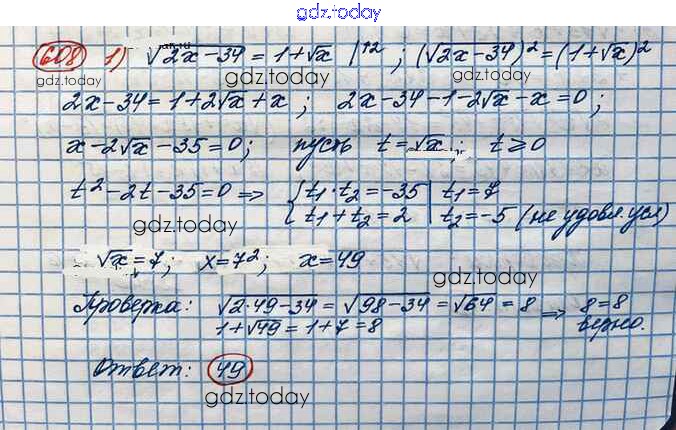 gdz.today
608 1) √2x-34 = 1+√x |↑2 ; (√2x-34)² = (1+√x)²
gdz.today gdz.today
2x-34 = 1+2√x+x ; 2x-34-1-2√x-x=0 ;
x-2√x-35=0 ; пусть t=√x ; t≥0
t²-2t-35=0 => { t₁·t₂=-35 | t₁=7
t₁+t₂=2 | t₂=-5 (не удовл. усл)
gdz.today
√x=7 ; x=7² ; x=49
gdz.today
Проверка: √2·49-34 = √98-34 = √64 = 8 => 8=8
1+√49 = 1+7 = 8 верно.
Ответ: 49
gdz.today